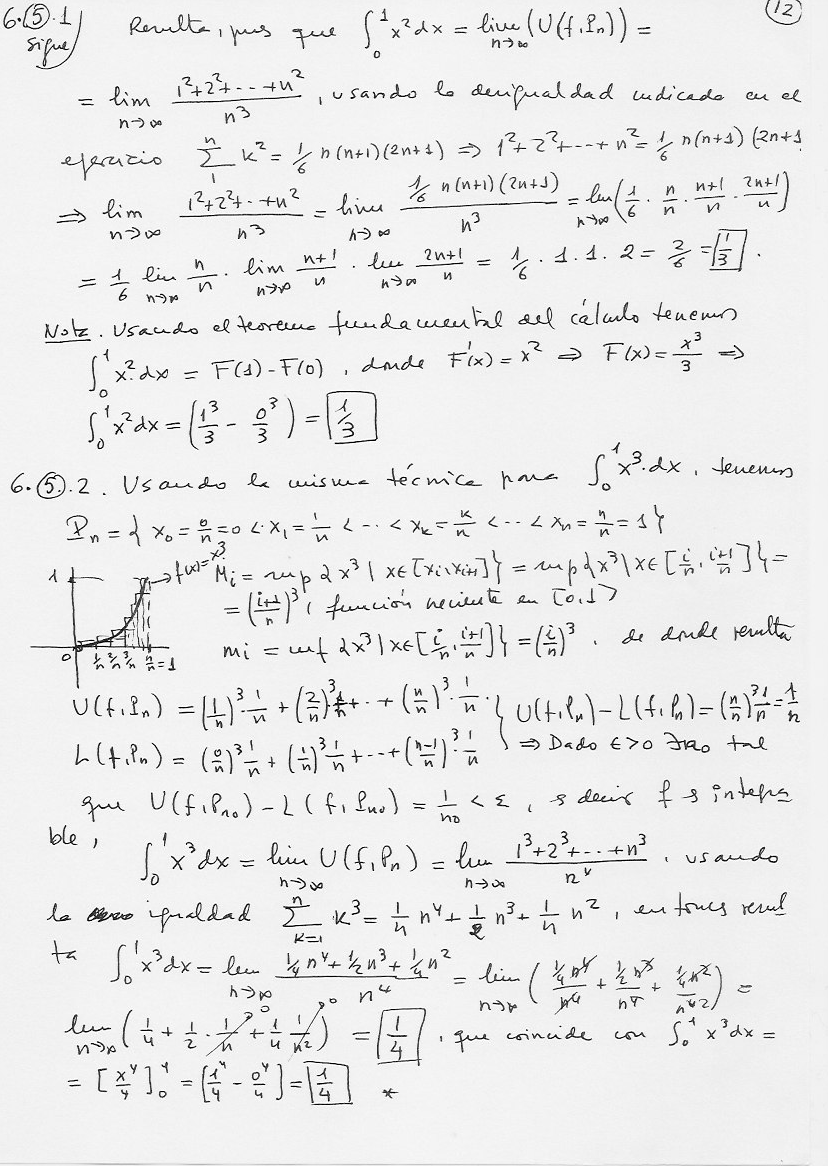 12
6.(5).1 Resulta, pues que ∫₀¹ x² dx = lim_{n→∞} (U(f, Pn)) =
sigue
= lim_{n→∞} (1²+2²+···+n²)/n³, usando la desigualdad indicada en el
ejercicio Σ₁ⁿ k² = 1/6 n(n+1)(2n+1) ⇒ 1²+2²+···+n² = 1/6 n(n+1)(2n+1
⇒ lim_{n→∞} (1²+2²+··+n²)/n³ = lim_{n→∞} (1/6 n(n+1)(2n+1))/n³ = lim_{n→∞} (1/6 · n/n · (n+1)/n · (2n+1)/n)
= 1/6 lim_{n→∞} n/n · lim_{n→∞} (n+1)/n · lim_{n→∞} (2n+1)/n = 1/6 · 1 · 1 · 2 = 2/6 = 1/3 .
Nota. Usando el teorema fundamental del cálculo tenemos
∫₀¹ x² dx = F(1) - F(0), donde F'(x) = x² ⇒ F(x) = x³/3 ⇒
∫₀¹ x² dx = (1³/3 - 0³/3) = 1/3
6.(5).2. Usando la misma técnica para ∫₀¹ x³·dx, tenemos
Pn = { x₀ = 0/n = 0 < x₁ = 1/n < ·· < x_k = k/n < ·· < x_n = n/n = 1 }
1 f(x)=x³ Mi = sup { x³ | x∈[xi, xi+1] } = sup { x³ | x∈[i/n, (i+1)/n] } =
= ((i+1)/n)³, función creciente en [0,1]
0 1/n 2/n 3/n n/n = 1 mi = inf { x³ | x∈[i/n, (i+1)/n] } = (i/n)³. de donde resulta
U(f, Pn) = (1/n)³·1/n + (2/n)³·1/n + ·· + (n/n)³·1/n. } U(f, Pn) - L(f, Pn) = (n/n)³ 1/n = 1/n
L(f, Pn) = (0/n)³ 1/n + (1/n)³ 1/n + ··· + ((n-1)/n)³·1/n } ⇒ Dado ε>0 ∃n₀ tal
que U(f, Pn₀) - L(f, Pn₀) = 1/n₀ < ε, es decir f es integra
ble, ∫₀¹ x³ dx = lim_{n→∞} U(f, Pn) = lim_{n→∞} (1³+2³+···+n³)/n⁴, usando
la igualdad Σ_{k=1}ⁿ k³ = 1/4 n⁴ + 1/2 n³ + 1/4 n², entonces resul
ta ∫₀¹ x³ dx = lim_{n→∞} (1/4 n⁴ + 1/2 n³ + 1/4 n²)/n⁴ = lim_{n→∞} (1/4 n⁴/n⁴ + 1/2 n³/n⁴ + 1/4 n²/n⁴²) =
lim_{n→∞} (1/4 + 1/2 · 1/n →0 + 1/4 1/n² →0) = 1/4, que coincide con ∫₀¹ x³ dx =
= [x⁴/4]₀¹ = [1⁴/4 - 0⁴/4] = 1/4 *